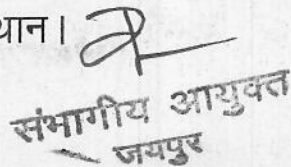 थान।
संभागीय आयुक्त
जयपुर